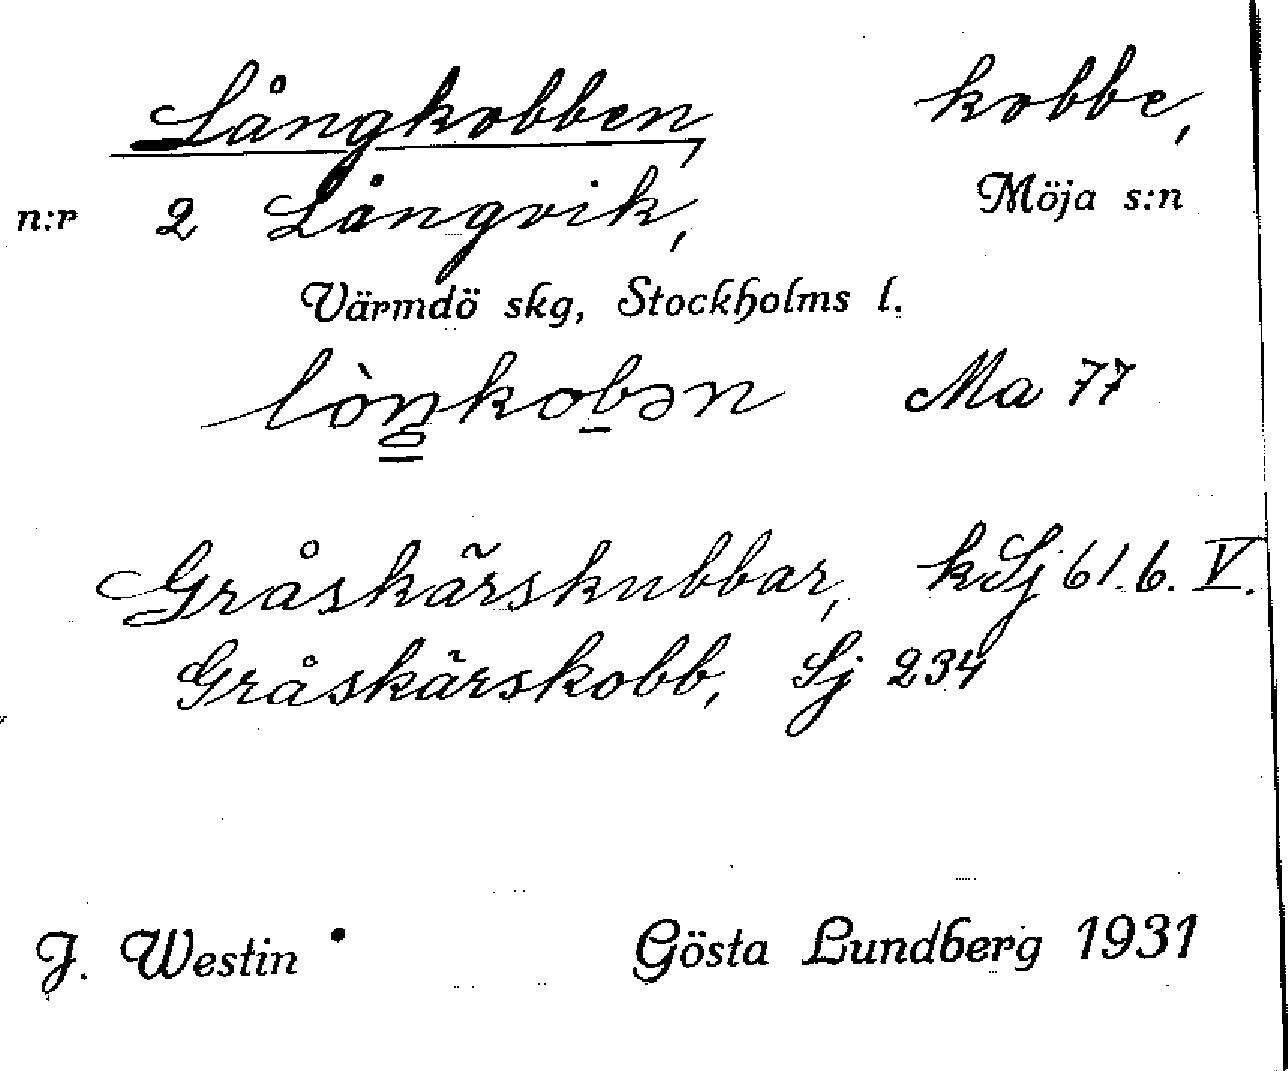 Långkobben, kobbe,
n:r 2 Långvik, Möja s:n
Värmdö skg, Stockholms l.
lòŋkobən Ma 77
Gråskärskubbar, kSj 61.b. V.
Gråskärskobb, Sj 234
J. Westin Gösta Lundberg 1931